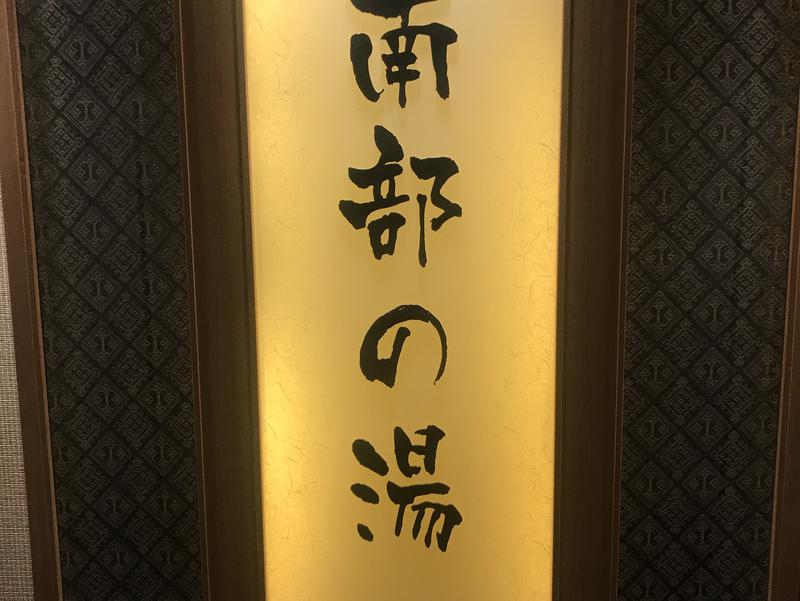 南部の湯